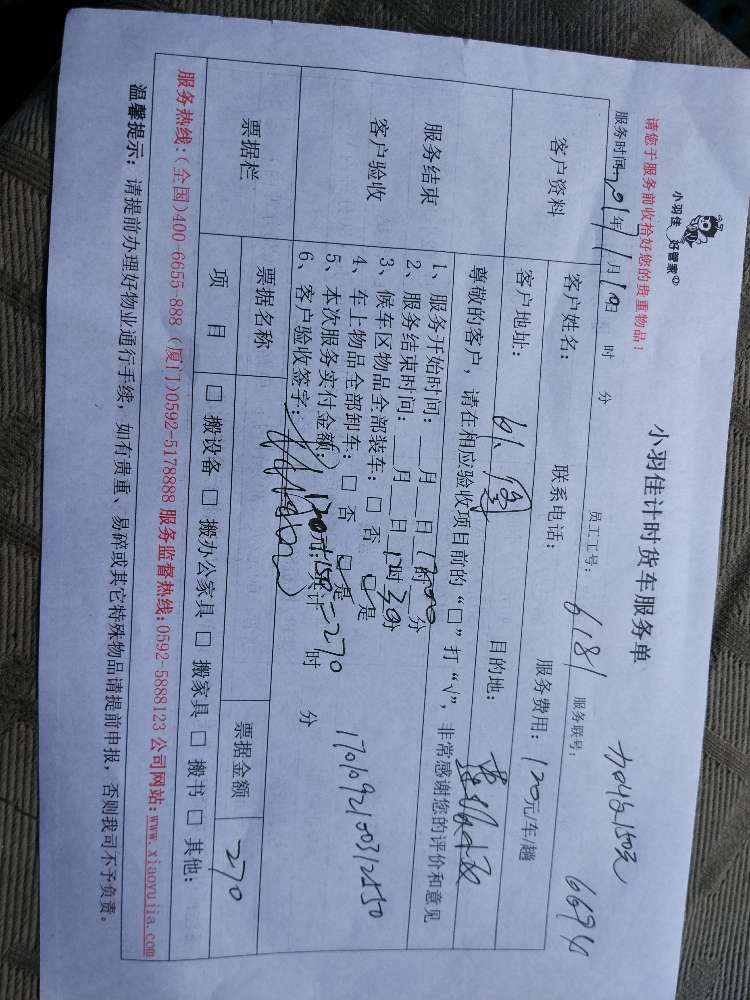 小羽佳
好管家
小羽佳计时货车服务单
请您于服务前收拾好您的贵重物品!
服务时间: 年 月10日 时 分 员工工号: 6181 服务联号: 6694
客户资料
客户姓名: 联系电话: 服务费用: 120元/车/趟
客户地址: 目的地:
服务结束
客户验收
尊敬的客户, 请在相应验收项目前的“□”打“√”, 非常感谢您的评价和意见
1、服务开始时间: __月__日 时 分
2、服务结束时间: __月__日 时30分
3、候车区物品全部装车: □ 否 □ 是
4、车上物品全部卸车: □ 否 □ 是
5、本次服务实付金额: 120元+150=270
6、客户验收签字: 时 分
票据栏
票据名称
票据金额
270
项 目
□ 搬设备 □ 搬办公家具 □ 搬家具 □ 搬书 □ 其他:
服务热线:(全国)400-6655-888 (厦门)0592-5178888 服务监督热线:0592-5888123 公司网站:www.xiaoyujia.com
温馨提示: 请提前办理好物业通行手续, 如有贵重、易碎或其它特殊物品请提前申报, 否则我司不予负责。